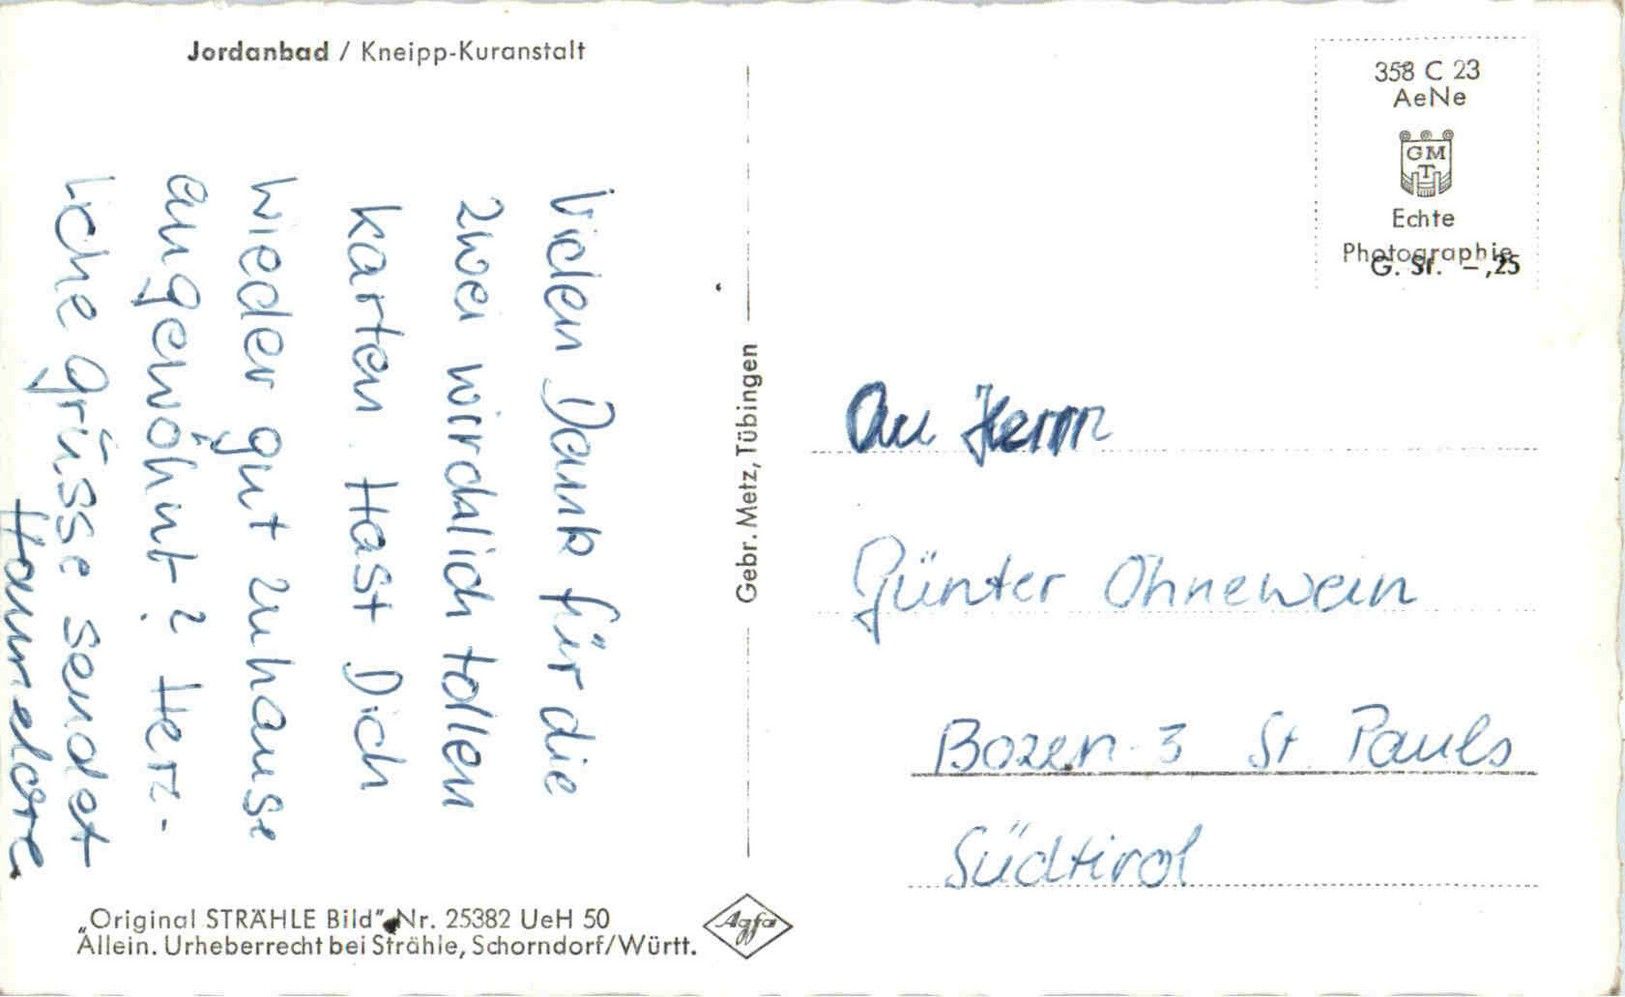 Jordanbad / Kneipp-Kuranstalt
Vielen Dank für die
zwei wirchlich tollen
Karten. Hast Dich
wieder gut zuhause
eingewöhnt? Herz-
liche grüsse sendet
Hannelore
„Original STRÄHLE Bild” Nr. 25382 UeH 50
Allein. Urheberrecht bei Strähle, Schorndorf/Württ.
Gebr. Metz, Tübingen
Agfa
358 C 23
AeNe
GM
T
Echte
Photographie
G. St. –,25
An Herrn
Günter Ohnewein
Bozen-3 St Pauls
Südtirol